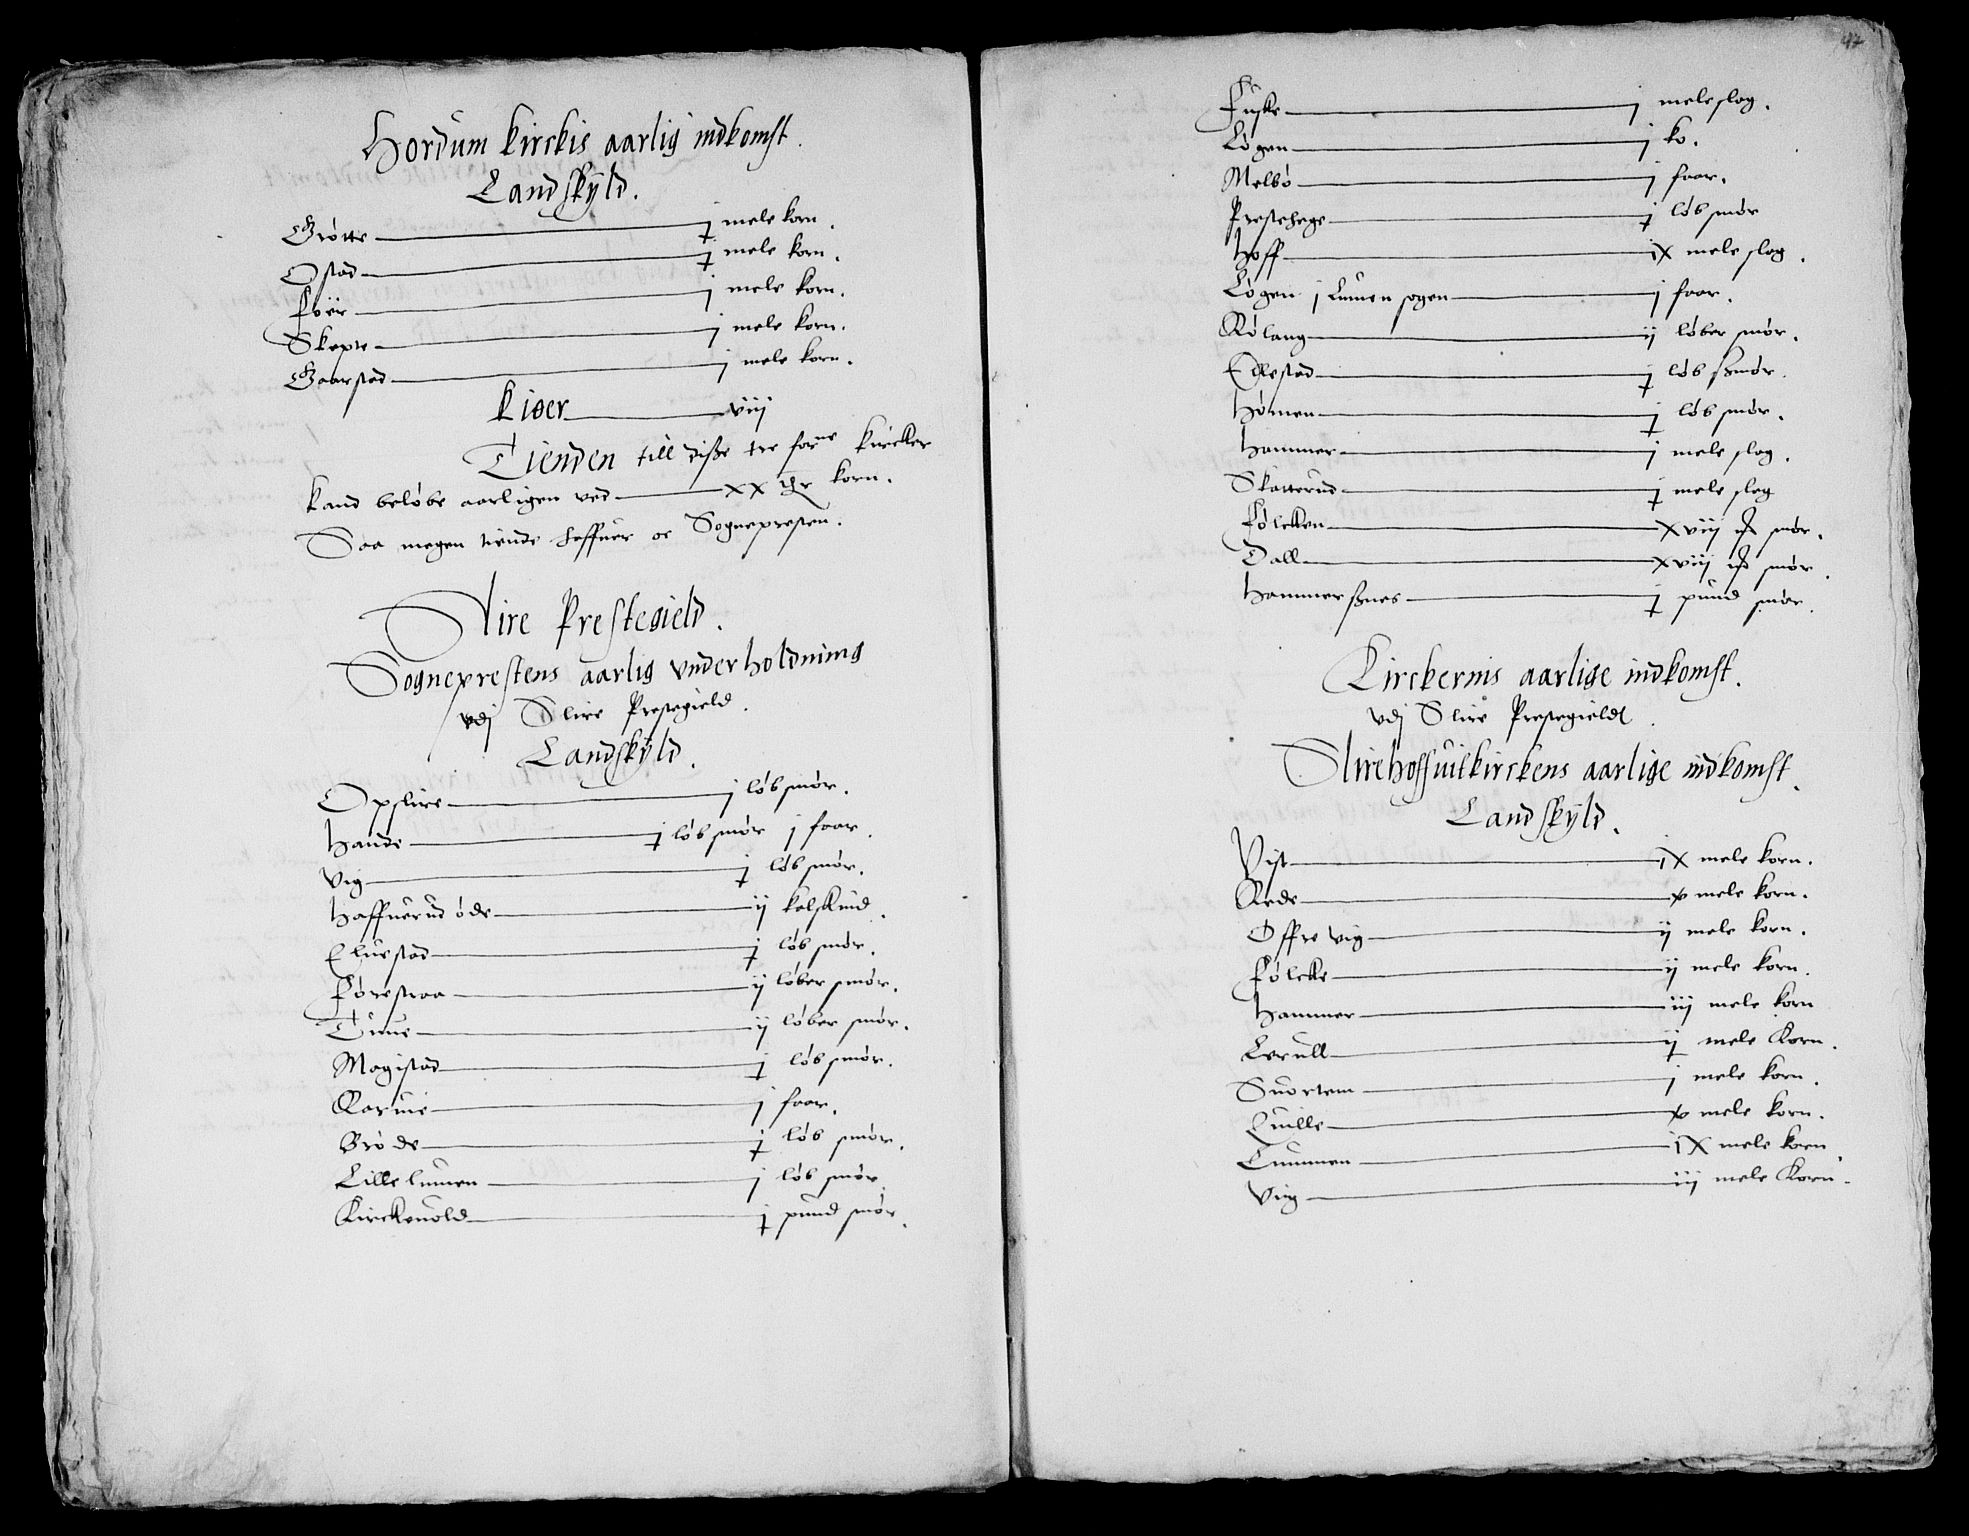 Hordum kirckis aarlig indkomst.
Landskyld.
Grøtte j mele korn.
Ostad j mele korn.
Føer j mele korn.
Skepre j mele korn.
Gaarstad j mele korn.
Kiøer viij
Tienden till disse tre for^ne kircker
kand beløbe aarligen ved xx thr korn.
Saa megen tiende heffuer oc Sognepresten.
Slire Prestegield.
Sogneprestens aarlig vnderholdning
vdj Slire Prestegield.
Landskyld.
Opslire j løb smør.
Hande j løb smør j faar.
Vig j løb smør.
Haffuerud øde ij kalskind.
Eluestad j løb smør.
Førestraa ij løber smør.
Tuue ij løber smør.
Magistad j løb smør.
Karuie j faar.
Brøde j løb smør.
Lille lumen j løb smør.
Kirckeuold j pund smør.
47
Fuske j mele slag.
Løgen j ko.
Melbø j faar.
Prestehege j løb smør
Hoff ix mele slag.
Løgen j Lumen sogen j faar.
Rølang ij løber smør.
Ellestad j løb smør.
Hømen j løb smør.
Hammer j mele slag.
Skatterud j mele slag
Følcken xviij smør.
Dall xviij smør.
Hammersnes j pund smør.
Kirckernis aarlige indkomst.
vdj Slire Prestegield.
Slirehoffuitkirckens aarlige indkomst.
Landskyld.
Vist ix mele korn.
Rede v mele korn.
Offre vig ij mele korn.
Følcke ij mele korn.
Hammer iij mele korn
Lerull ij mele Korn.
Suortem j mele korn.
Quille v mele korn.
Lummen ix mele korn.
Viig iij mele Korn.